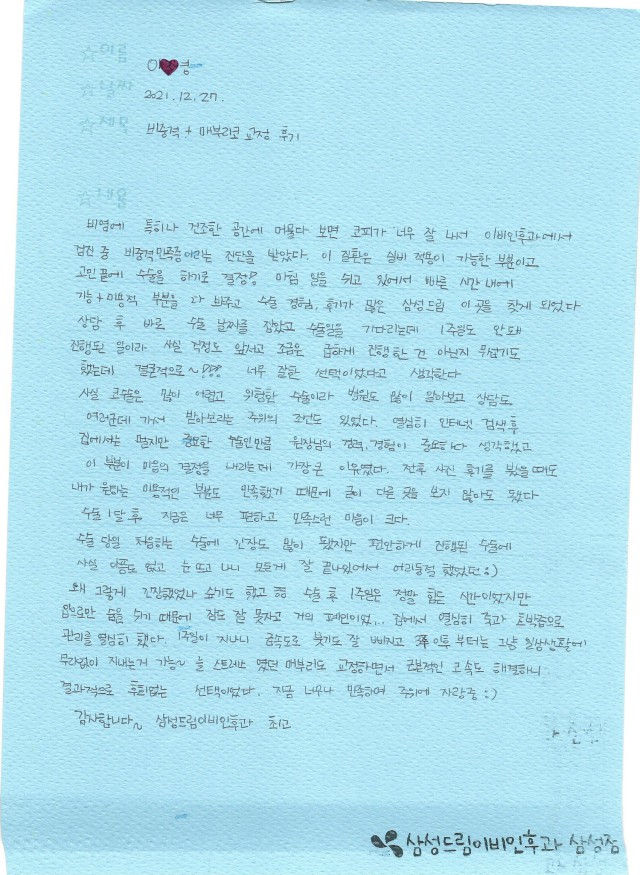 이♥영
2021.12.27.
비중격 + 매부리코 교정 후기
비염에 특히나 건조한 공간에 머물다 보면 코피가 너무 잘 나서 이비인후과에서
검진 중 비중격만곡증이라는 진단을 받았다. 이 질환은 실비 적용이 가능한 부분이고
고민 끝에 수술을 하기로 결정!! 마침 일을 쉬고 있어서 빠른 시간 내에
기능+미용적 부분을 다 봐주고 수술 경험, 후기가 많은 삼성드림 이 곳을 찾게 되었다
상담 후 바로 수술 날짜를 잡았고 수술일을 기다리는데 1주일도 안돼
진행된 일이라 사실 걱정도 앞서고 조금은 급하게 진행한 건 아닌지 무섭기도
했는데 결론적으로~!!! 너무 잘한 선택이었다고 생각한다
사실 코수술은 많이 어렵고 위험한 수술이라 병원도 많이 알아보고 상담도
여러군데 가서 받아보라는 주위의 조언도 있었다. 열심히 인터넷 검색 후
집에서는 멀지만 중요한 수술인만큼 원장님의 경력, 경험이 중요하다 생각했고
이 부분이 마음의 결정을 내리는데 가장 큰 이유였다. 전후 사진 후기를 봤을때도
내가 원하는 미용적인 부분도 만족했기 때문에 굳이 다른 곳을 보지 않아도 됐다
수술 1달 후 지금은 너무 편하고 만족스런 마음이 크다.
수술 당일 처음하는 수술에 긴장도 많이 됐지만 편안하게 진행된 수술에
사실 아픔도 없고 눈 뜨고 나니 모든게 잘 끝나있어서 어리둥절 했었던 :)
왜 그렇게 긴장했었나 싶기도 했고 ㅎㅎ 수술 후 1주일은 정말 힘든 시간이었지만
입으로만 숨을 쉬기 때문에 잠도 잘 못자고 거의 폐인이었... 집에서 열심히 죽과 호박즙으로
관리를 열심히 했다. 1주일이 지나니 급속도로 붓기도 잘 빠지고 이후부터는 그냥 일상생활에
무리없이 지내는거 가능~ 늘 스트레스 였던 매부리도 교정하면서 근본적인 코속도 해결하니
결과적으로 후회없는 선택이었다. 지금 너무나 만족하여 주위에 자랑중 :)
감사합니다~ 삼성드림이비인후과 최고
삼성드림이비인후과 삼성점